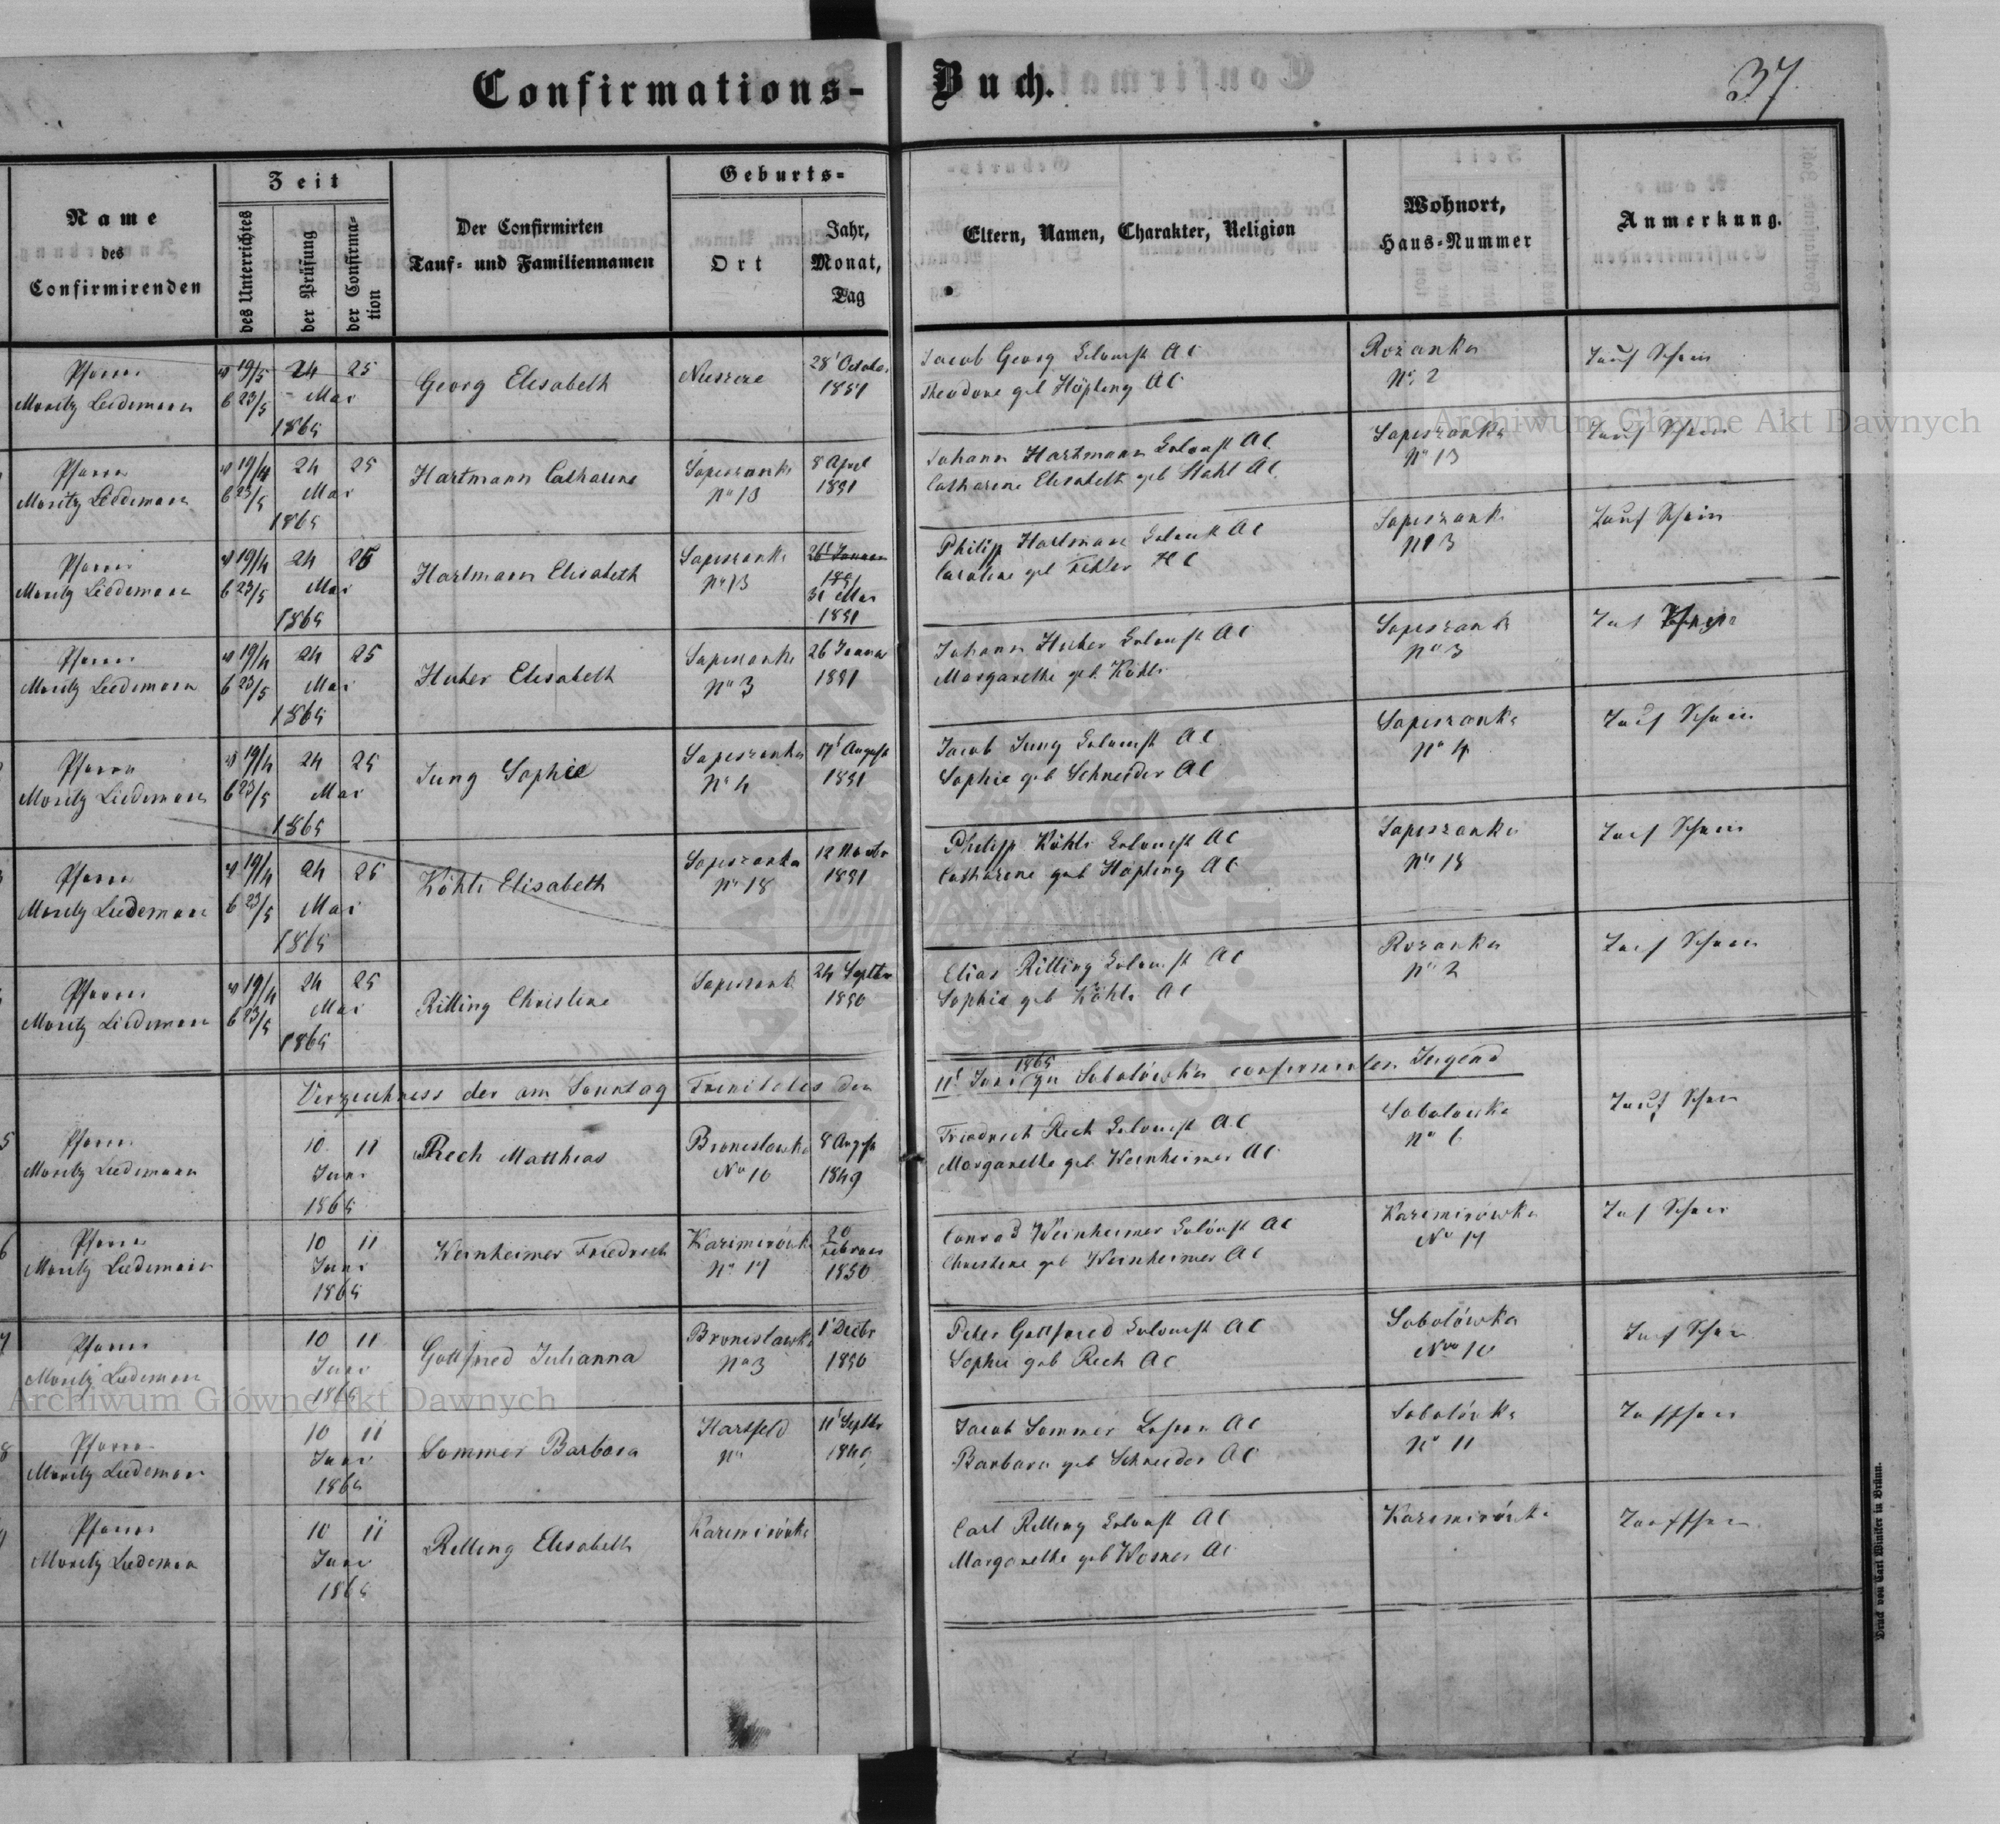 Confirmations-Buch.
37
Name des Confirmirenden
Zeit
des Unterrichtes
der Prüfung
der Confirmation
Der Confirmirten
Tauf- und Familiennamen
Geburts-
Ort
Jahr, Monat, Tag
Eltern, Namen, Charakter, Religion
Wohnort, Haus-Nummer
Anmerkung.
Pfarrer 19/5 24 25 28t October Jacob Georg Colonist AC Rozanka Tauf Schein
Moritz Liedemann 23/5 Mai Georg Elisabeth 1851 Theodore geb Höpling AC No. 2
1865
Pfarrer 19/4 24 25 Hartmann Catharine Sapieszanka 8 April Johann Hartmann Colonist AC Sapieszanka Tauf Schein
Moritz Liedemann 23/5 Mai No 13 1851 Catharine Elisabeth geb Stahl AC No 13
1865
Pfarrer 19/4 24 25 Hartmann Elisabeth Sapieszanka 26t Januar Philipp Hartmann Colonist AC Sapieszanka Tauf Schein
Moritz Liedemann 23/5 Mai No 13 1851 Caroline geb HC
1865 31 Mai
1851
Pfarrer 19/4 24 25 Huber Elisabeth Sapieszanka 26 Januar Johann Huber Colonist AC Sapieszanka
Moritz Liedemann 23/5 Mai No 3 1851 Margarethe geb Köhle No 3
1865
Pfarrer 19/4 24 25 Jung Sophie Sapieszanka 17t August Jacob Jung Colonist AC Sapieszanka Tauf Schein
Moritz Liedemann 23/5 Mai No 4 1851 Sophie geb Schneider AC No 4
1865
Pfarrer 19/4 24 25 Köhle Elisabeth Sapieszanka 12 Novbr Philipp Köhle Colonist AC Sapieszanka Tauf Schein
Moritz Liedemann 23/5 Mai No 18 1851 Catharine geb Höpling AC No 18
1865
Pfarrer 19/4 24 25 Rilling Christine Sapieszank 24 Septbr Elias Rilling Colonist AC Rozanka Tauf Schein
Moritz Liedemann 23/5 Mai 1850 Sophie geb Köhle AC No 2
1865
Verzeichniss der am Sonntag Trinitatis den 11t Juni 1865 zu Sobolówka confirmirten Jugend
5 Pfarrer 10 11 Rech Matthias Bronislawka 8 August Friedrich Rech Colonist AC Sobolowka Tauf Schein
Moritz Liedemann Juni No 10 1849 Margarethe geb Weinheimer AC No 6
1865
6 Pfarrer 10 11 Weinheimer Friedrich Kazimirówka 20 Februar Conrad Weinheimer Colonist AC Kazimirówka Tauf Schein
Moritz Liedemann Juni No 17 1850 Christine geb Weinheimer AC No 17
1865
7 Pfarrer 10 11 Gottfried Julianna Bronislawka 1t Decbr Peter Gottfried Colonist AC Sobolówka Tauf Schein
Moritz Liedemann Juni No 3 1850 Sophie geb Rech AC No 10
1865
8 Pfarrer 10 11 Sommer Barbara Hartfeld 11t Septbr Jacob Sommer AC Sobolówka Taufschein
Moritz Liedemann Juni No 1849 Barbara geb Schneider AC No 11
1865
Pfarrer 10 11 Rilling Elisabeth Kazimirówka Carl Rilling Colonist AC Kazimirówka Taufschein
Moritz Liedemann Juni Margarethe geb AC
1865
Druck von Carl Winiker in Brünn.
Archiwum Główne Akt Dawnych
Archiwum Główne Akt Dawnych